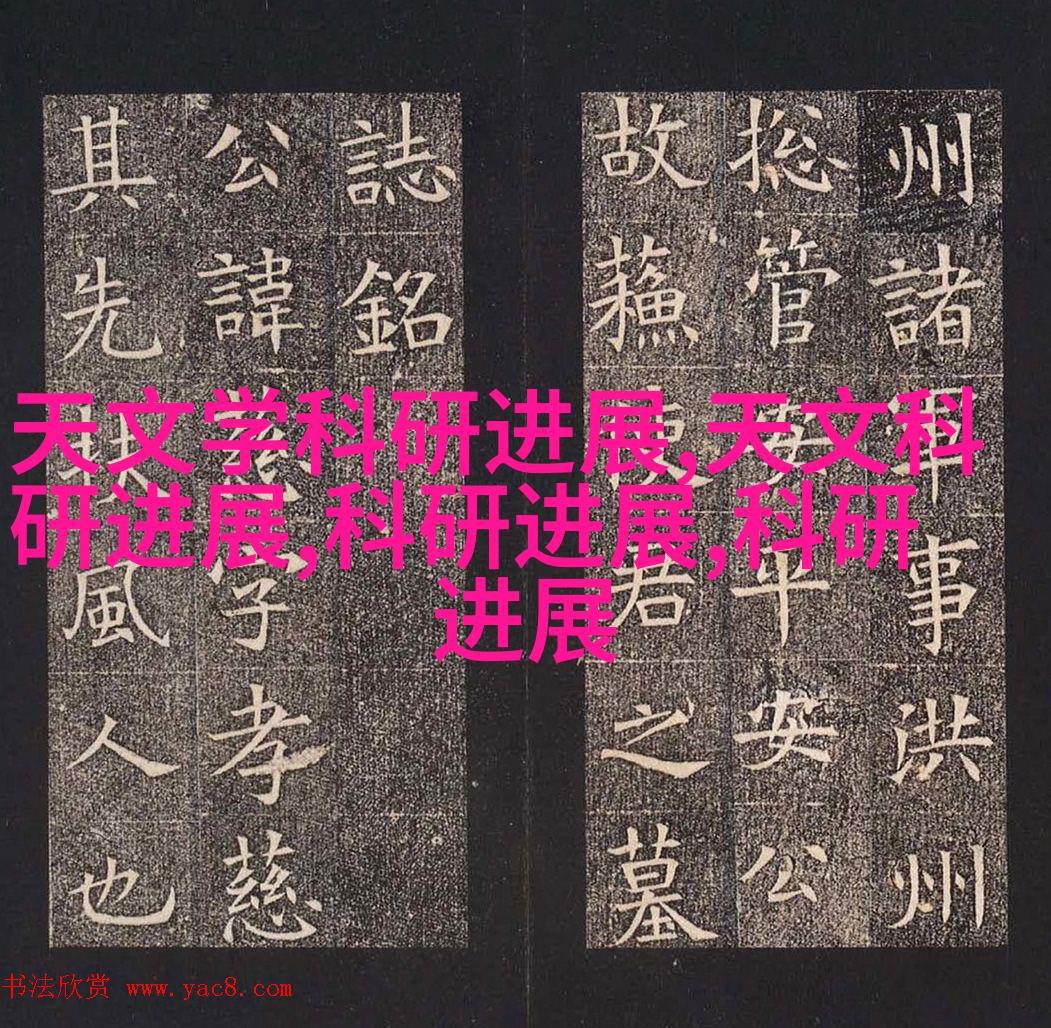 州諸軍事洪州
捴管安平安公
故蘓使君之墓
誌銘
公諱慈字孝慈
其先扶風人也
天文学科研进展,天文科
研进展,科研进展,科研
进展
书法欣赏 www.yac8.com